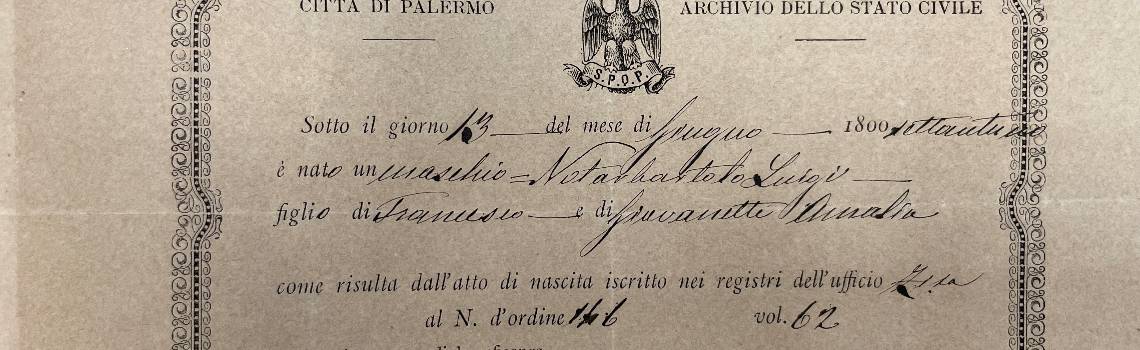 CITTÀ DI PALERMO
ARCHIVIO DELLO STATO CIVILE
S.P.Q.P.
Sotto il giorno 13 del mese di Giugno 1800 settantuno
è nato un maschio = Notarbartolo Luigi
figlio di Francesco e di Giovanetti Amalia
come risulta dall'atto di nascita iscritto nei registri dell'ufficio
al N. d'ordine 146 vol. 62